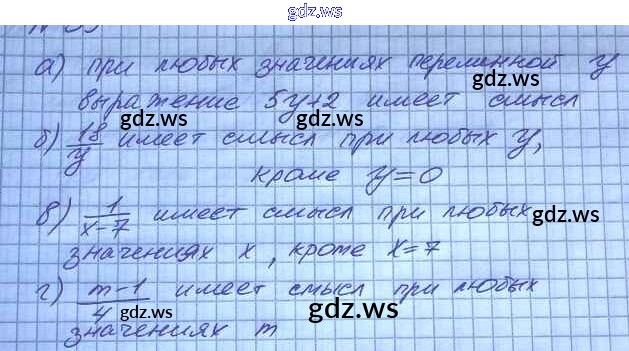 gdz.ws
а) при любых значениях переменной y
gdz.ws
выражение 5y+2 имеет смысл
gdz.ws
б) 18/y имеет смысл при любых y,
кроме y=0
в) 1/(x-7) имеет смысл при любых
gdz.ws
значениях x, кроме x=7
г) (m-1)/4 имеет смысл при любых
gdz.ws gdz.ws
значениях m